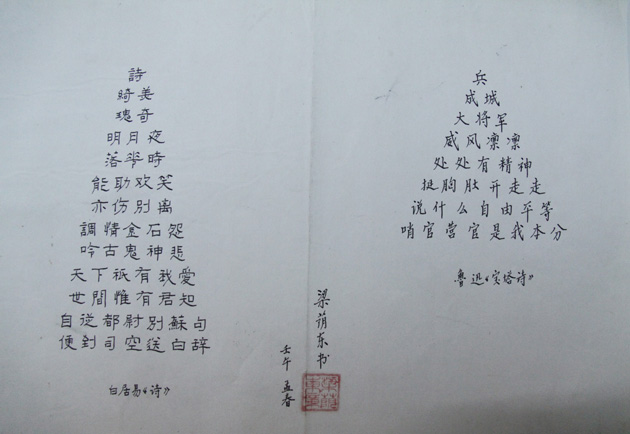 詩
綺美
瑰奇
明月夜
落花時
能助欢笑
亦伤別离
調情金石怨
吟古鬼神悲
天下祇有我愛
世間惟有君知
自從都尉別蘇句
便到司空送白辞
白居易《诗》
兵
成城
大将军
威风凛凛
处处有精神
挺胸肚开走走
说什么自由平等
哨官营官是我本分
鲁迅《宝塔诗》
梁荫东书
壬午孟春